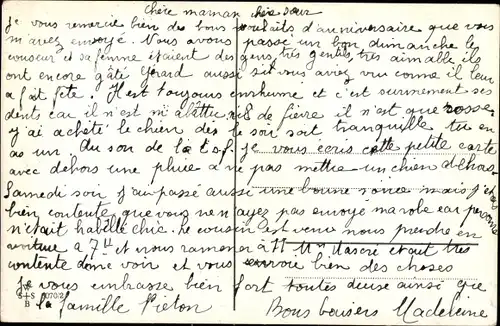 Chère maman chère sœur
je vous remercie bien des bons souhaits d'anniversaire que vous
m'avez envoyé. Nous avons passé un bon dimanche le
couseur et sa femme étaient des gens très gentils très aimable ils
ont encore gâté Gérard aussi si vous avez vu comme il leur
a fait fête. Il est toujours enrhumé et c'est surement ses
dents car il n'est ni abattu ni de fièvre il n'est que rosse
j'ai acheté le chien des le soir sait tranquille tu en
as un. Au son de la t.s.f. je vous écris cette petite carte
avec dehors une pluie a ne pas mettre un chien dehors
Samedi soir j'ai passé aussi une bonne soirée mais j'é
bien contente que vous ne m'ayez pas envoyé ma robe car personne
n'était habillé chic. Le cousin est venu nous prendre en
voiture a 7H et nous ramener à 11H Mme était très
contente de me voir et vous envoie bien des choses
Je vous embrasse bien fort toutes deux ainsi que
la famille Piéton Bons baisers Madeleine